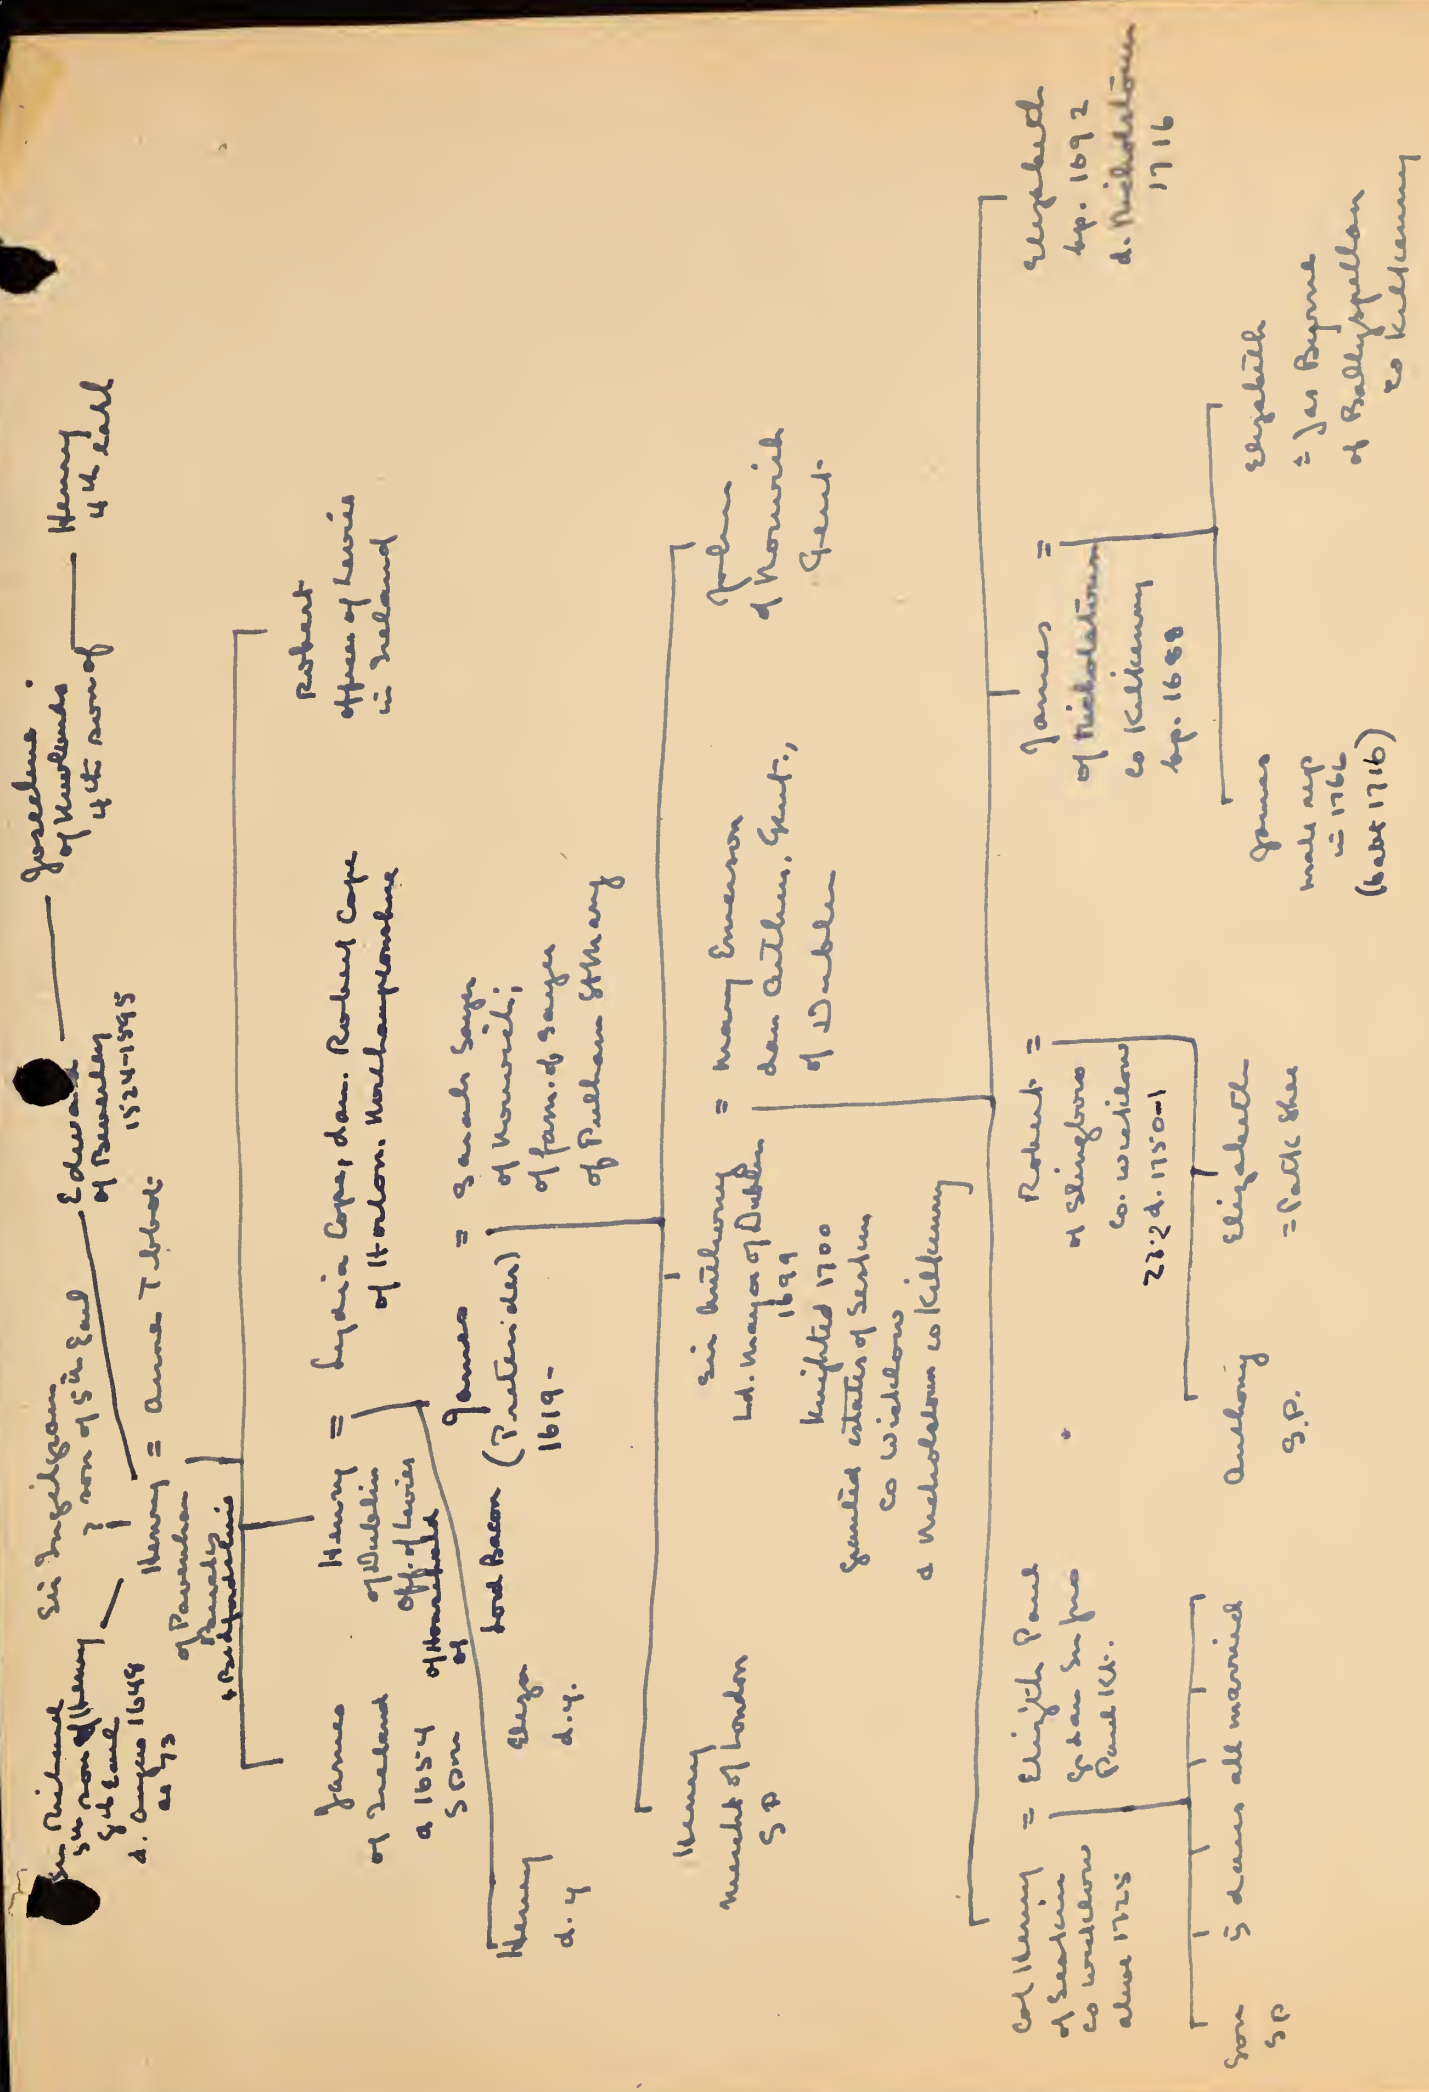 Sir Richard
5th son of Henry
8th Earl
d. Angers 1648
ae 73
Sir Ingelgram
? son of 5th Earl
Henry = Anne Tibbot
of Pavenham
Bedfordshire
Edward
of Beverley
1524-1595
Josceline
of Newlands
4th son of
Henry
4th Earl
James
of Ireland
a 1654
Spm
Henry =
of Dublin
Off. of Levies
of Household
of
Lord Bacon
Lydia Cope, dau. Robert Cope
of Horton. Northamptonshire
Robert
Officer of Levies
in Ireland
Henry
d. y
Eliza
d. y.
James =
(Pretender)
1619-
Sarah Sayer
of Norwich;
of fam. of Sayer
of Pulham St Mary
Henry
Mercht of London
SP
Sir Anthony =
Ld. Mayor of Dublin
1699
Knighted 1700
Granted estates of Seskin
Co Wicklow
& Nicholstown co Kilkenny
Mary Emerson
dau Arthur. Gent.,
of Dublin
John
of Norwich
Gent.
Col Henry =
of Seskin
co Wicklow
alive 1725
Elizth Paul
gdau Sir Jno
Paul Kt.
Robert =
of Slingboro
Co. Wicklow
23.2 d. 1750-1
James =
of Nicholstown
co Kilkenny
bp. 1688
Elizabeth
bp. 1692
d. Nicholstown
1716
Son
SP
5 daus all married
Anthony
S.P.
Elizabeth
= Patk Shee
James
male rep
in 1766
(b abt 1716)
Elizabeth
= Jas Byrne
of Ballyspellan
co Kilkenny